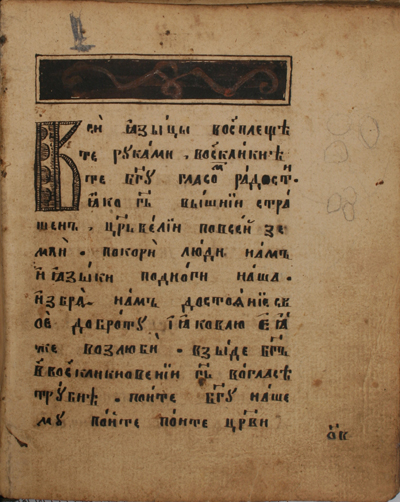 Вси ꙗзыцы восплещѣ
те рꙋками , воскликнѣ
те бг҃ꙋ гласоⷨ радостⷩ
ꙗко гь҃ вышнїи стра
шенъ . цр҃ь велїи повсей зе
мли . покори люди намъ
и ꙗзыки подноги наша .
избра намъ достоѧнїе св
ое добротꙋ їꙗковлю
же возлюби . взыде бг҃ъ
в воскликновенїи гь҃ вогласѣ
трꙋбнѣ . поите бг҃ꙋ наше
мꙋ поите поите цр҃ви